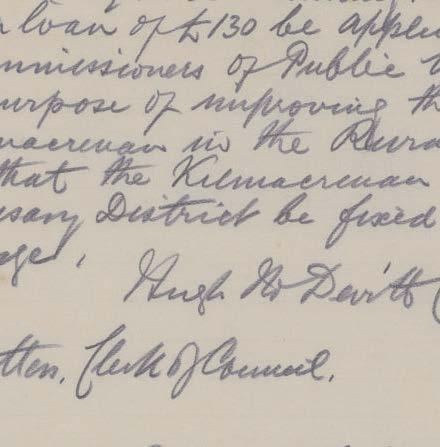 loan of £130 be applie
mmissioners of Public W
urpose of improving th
macrenan in the Rura
that the Kilmacrenan
sary District be fixed
ge,
Hugh McDevitt (
tten, Clerk of Council.